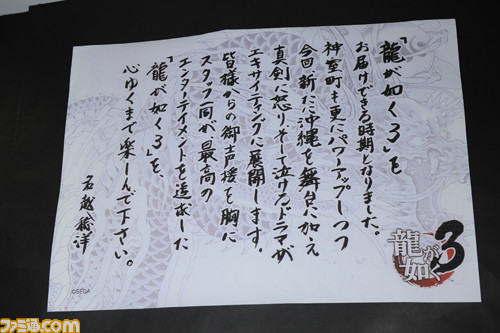 「龍が如く3」を
お届けできる時期となりました。
神室町も更にパワーアップしつつ
今回新たに沖縄を舞台に加え
真剣に怒り、そして泣けるドラマが
エキサイティングに展開します。
皆様からの御声援を胸に
スタッフ一同が最高の
エンターテイメントを追求した
「龍が如く3」を、
心ゆくまで楽しんで下さい。
名越稔洋
龍が如く3
©SEGA
ファミ通.com